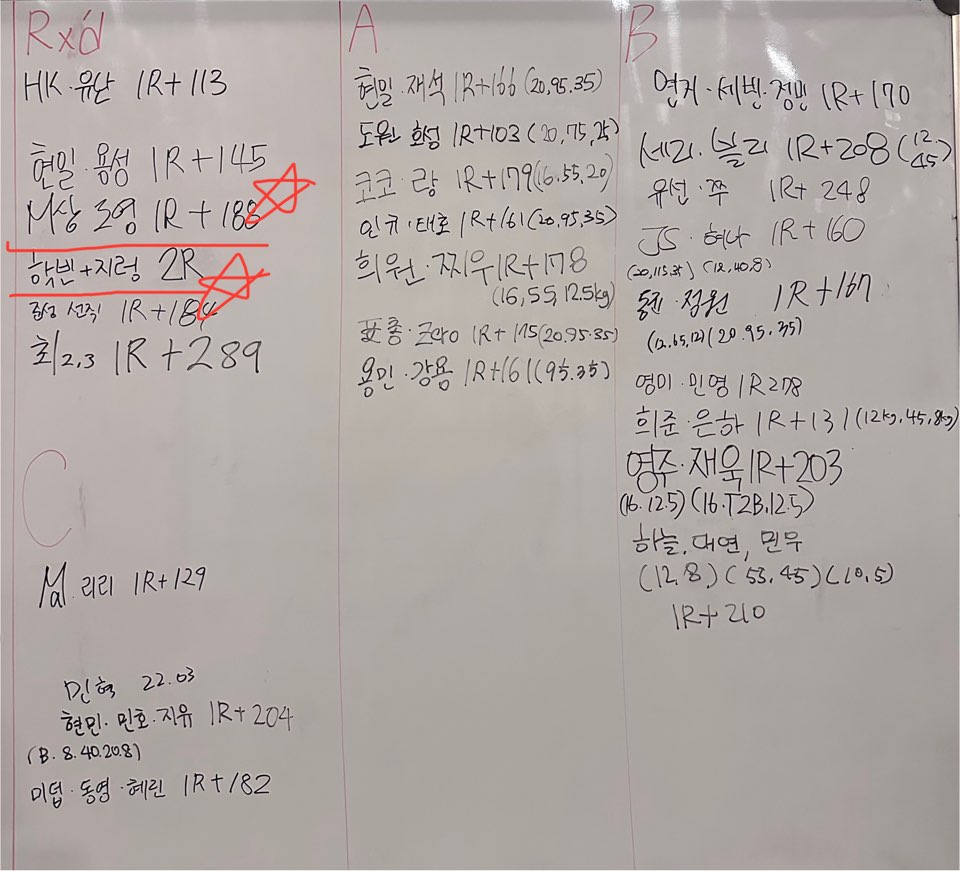 Rx'd
HK·유산 1R+113
현밀·용성 1R+145
M상 르영 1R+188
학빈+지렁 2R
선직 1R+184
최2,3 1R+289
A
현밀·재석 1R+166 (20,95,35)
도원 화성 1R+103 (20,75,25)
코코·랑 1R+179 (16.55,20)
인규·태호 1R+161 (20,95,35)
희원·찌우 1R+178
(16,55,12.5kg)
표홍·Zero 1R+175 (20.95.35)
용민·강용 1R+161 (95.35)
B
연지·세빈·정민 1R+170
세리·블리 1R+208 (12,
45)
유선·쭈 1R+248
JS·혀나 1R+160
(20,115,35) (12,40,8)
정원 1R+167
(12.65,12) (20.95.35)
영미·민영 1R278
희준·은하 1R+131 (12kg,45,8kg)
영주·재욱 1R+203
(16.12.5) (16.T2B.12.5)
하늘, 대연, 민우
(12,8) (53,45) (10,5)
1R+210
C
Ma·리리 1R+129
민혁 22.03
현민·민호·지유 1R+204
(B.8.40.20.8)
미덥·동영·혜린 1R+182